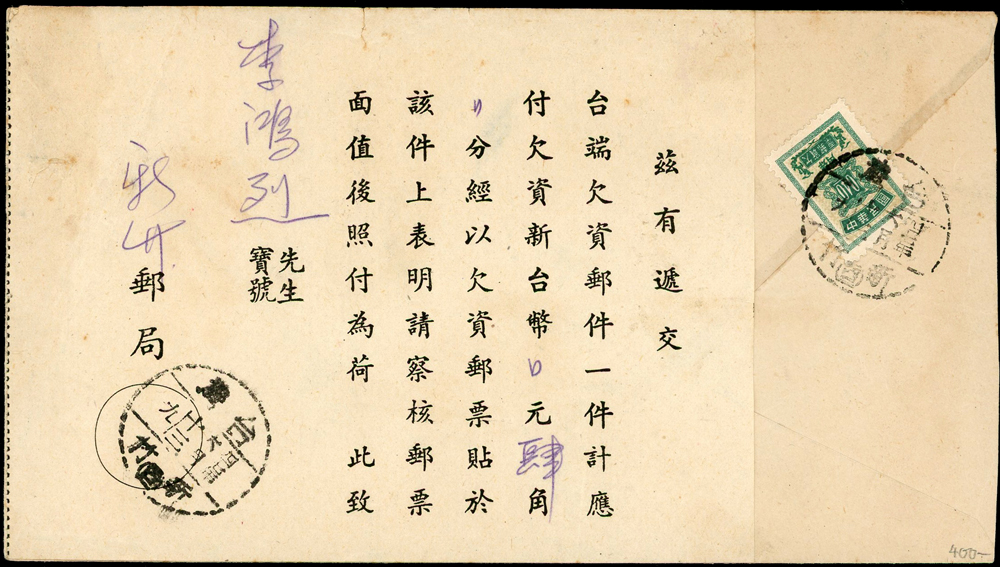 茲有遞交
台端欠資郵件一件計應
付欠資新台幣〇元肆角
〇分經以欠資郵票貼於
該件上表明請察核郵票
面值後照付為荷 此致
李鴻烈
先生
寶號
新竹郵局
台灣
新竹
400-